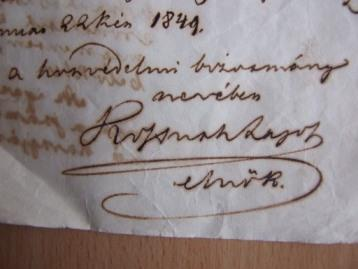 22kén 1849.
a honvédelmi bizomány
nevében
Kossuth Lajos
elnök.